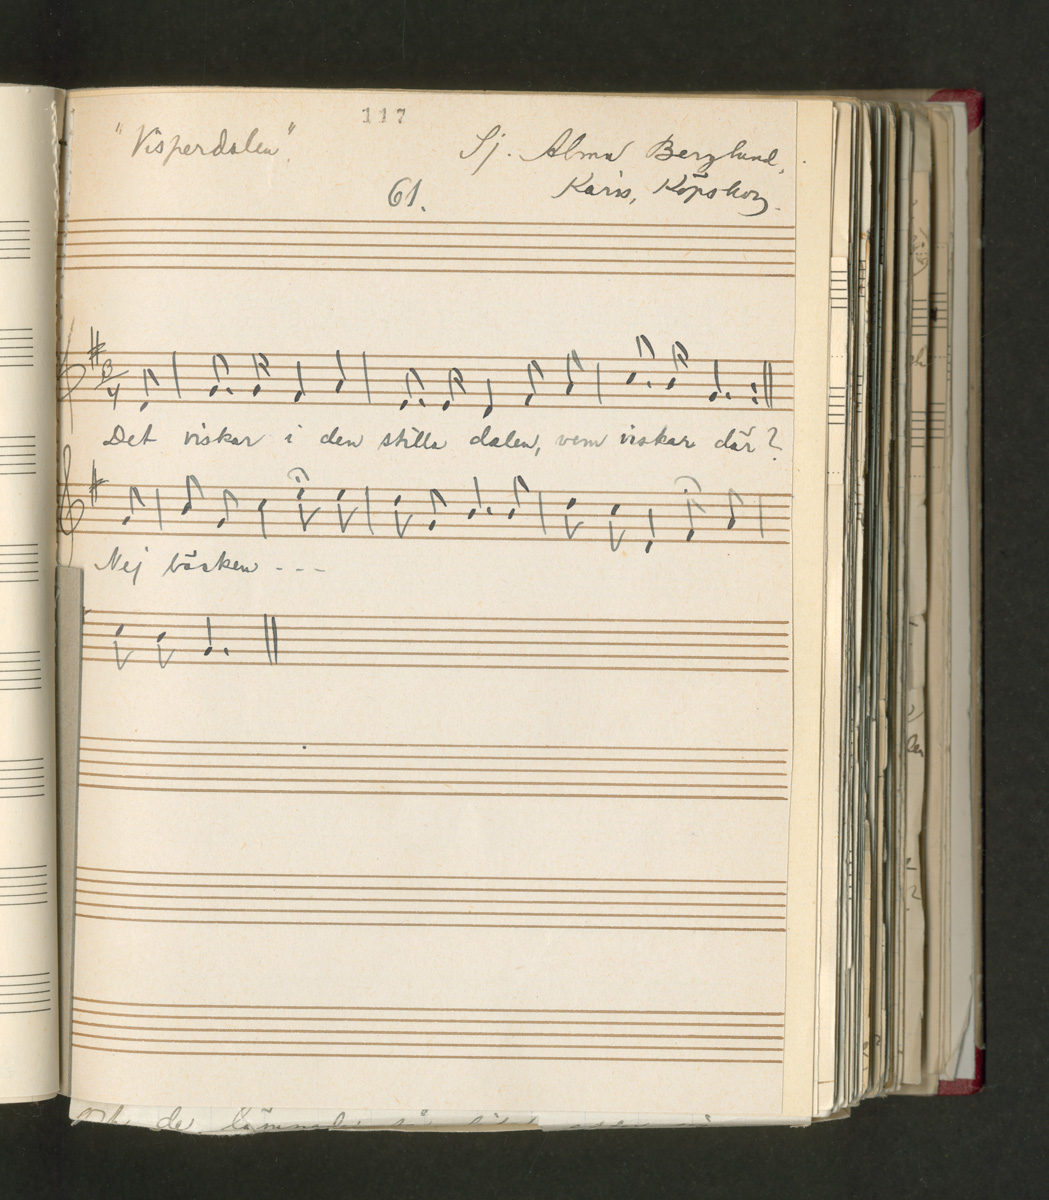 117
"Visperdalen"
Sj. Alma Berglund,
61.
Karis, Köpskog.
3
4
Det viskar i den stilla dalen, vem viskar där?
Nej bäcken - - -
de